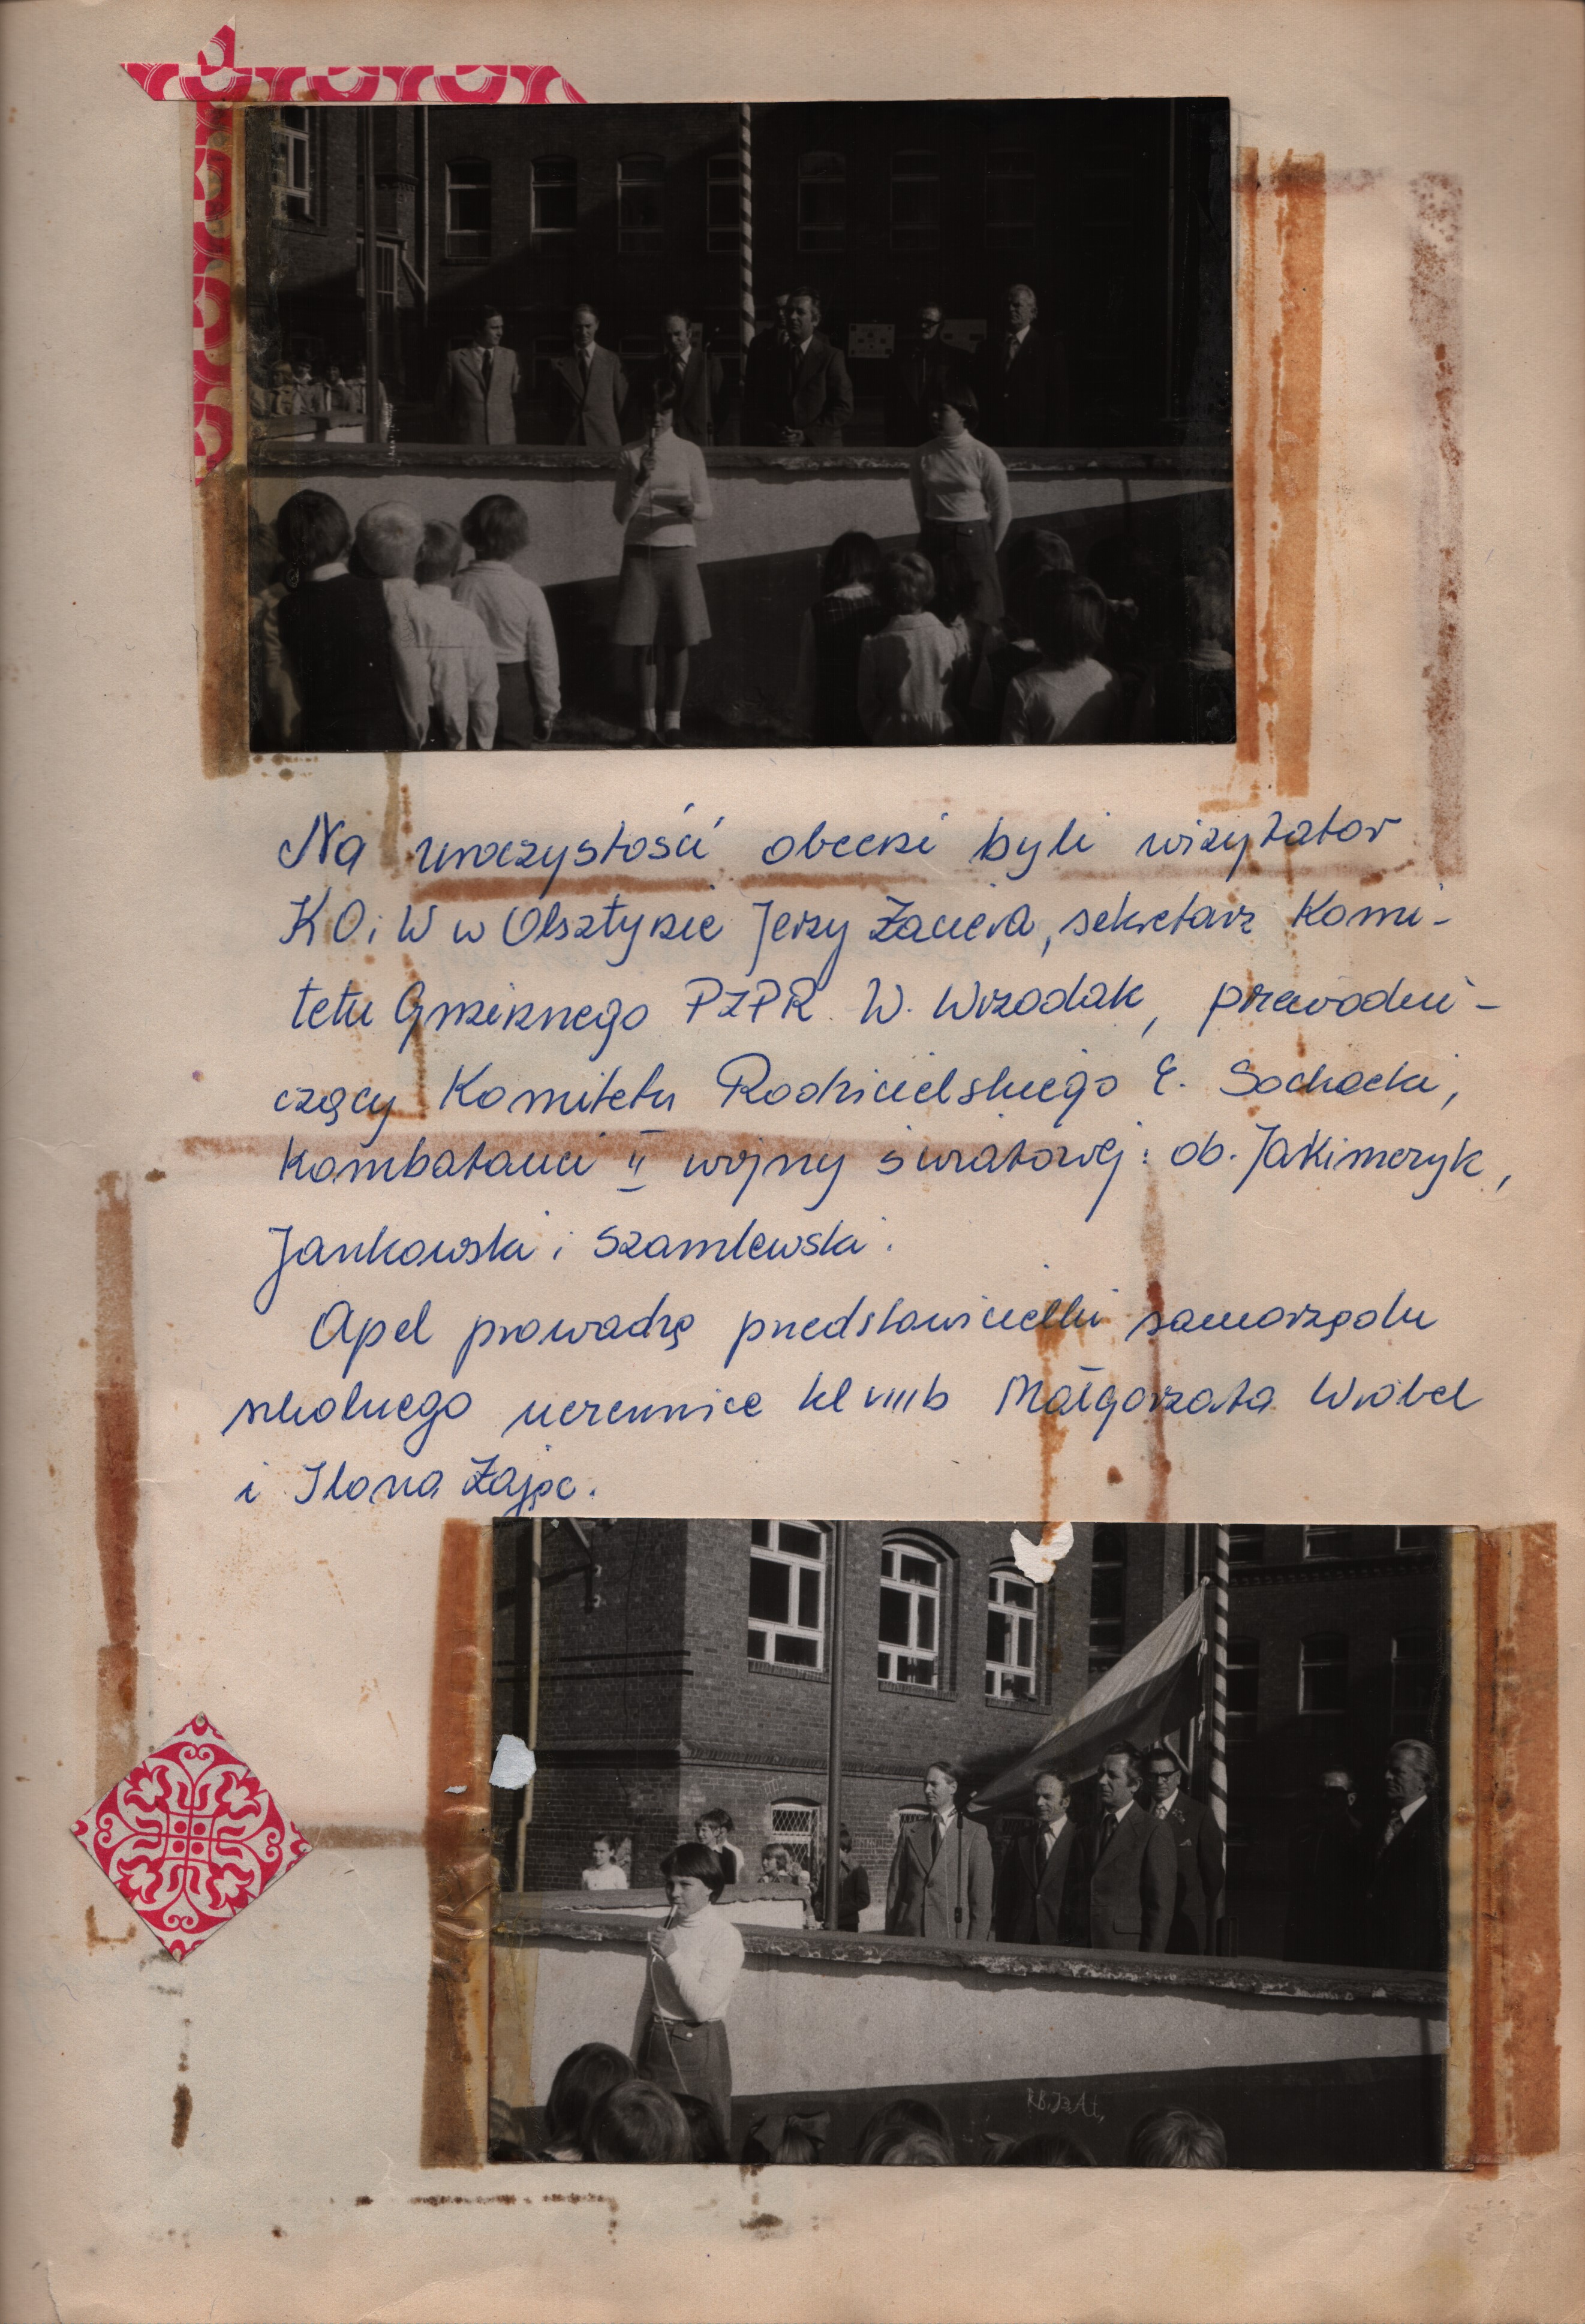 Na uroczystości obecni byli wizytator
KOiW w Olsztynie Jerzy Żaciera, sekretarz Komi-
tetu Gminnego PZPR W. Wrzodak, przewodni-
czący Komitetu Rodzicielskiego E. Sochacki,
kombatanci II wojny światowej: ob. Jakimczyk,
Jankowski i Szamlewski.
Apel prowadzą przedstawicielki samorządu
szkolnego uczennice kl VIII b Małgorzata Wróbel
i Ilona Zając.